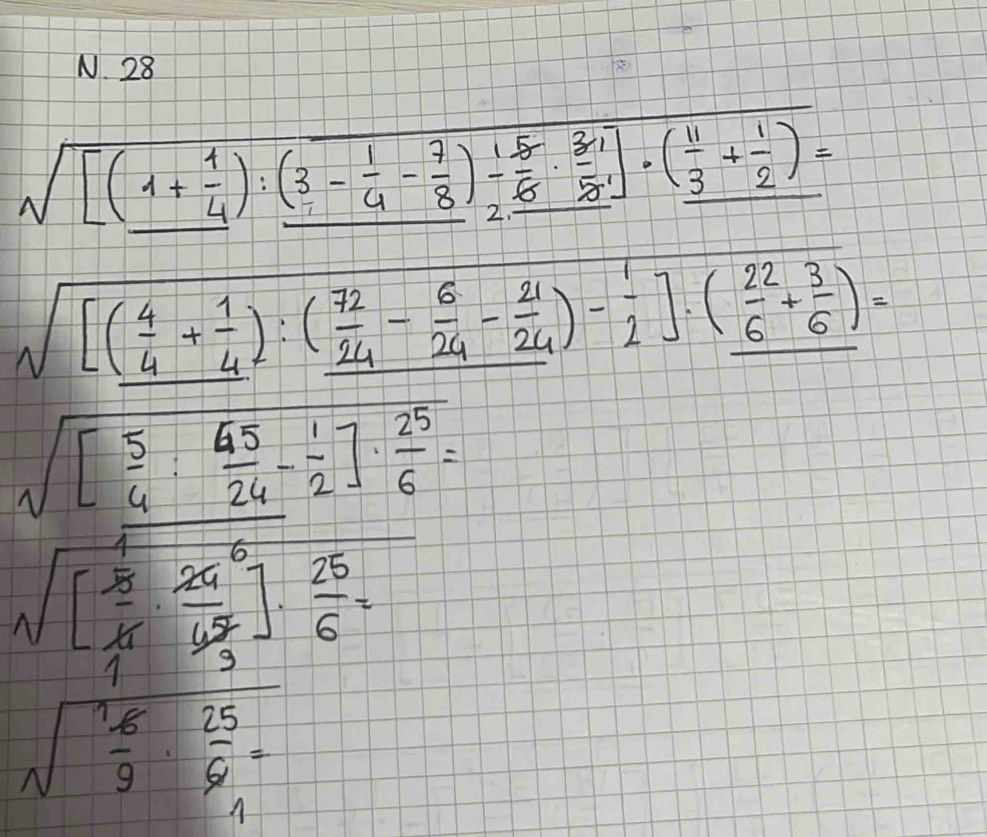 N. 28
√[(1 + 1/4) : (3/1 - 1/4 - 7/8) - 5/6 · 3/5] · (11/3 + 1/2) =
√[(4/4 + 1/4) : (72/24 - 6/24 - 21/24) - 1/2] · (22/6 + 3/6) =
√[5/4 : 45/24 - 1/2] · 25/6 =
√[5/4 · 24/45] · 25/6 =
√6/9 · 25/6 =